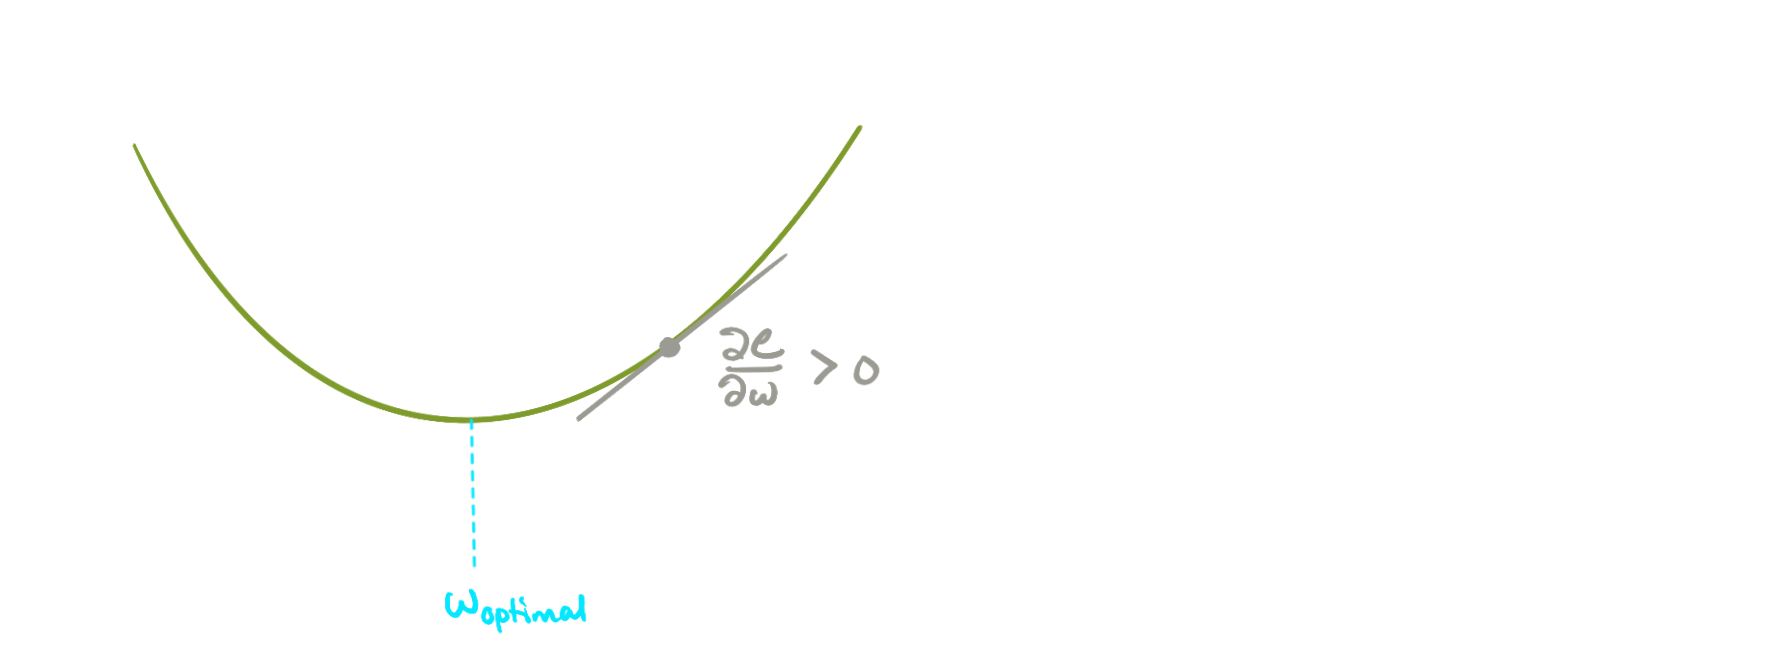 ∂e/∂w > 0
w optimal